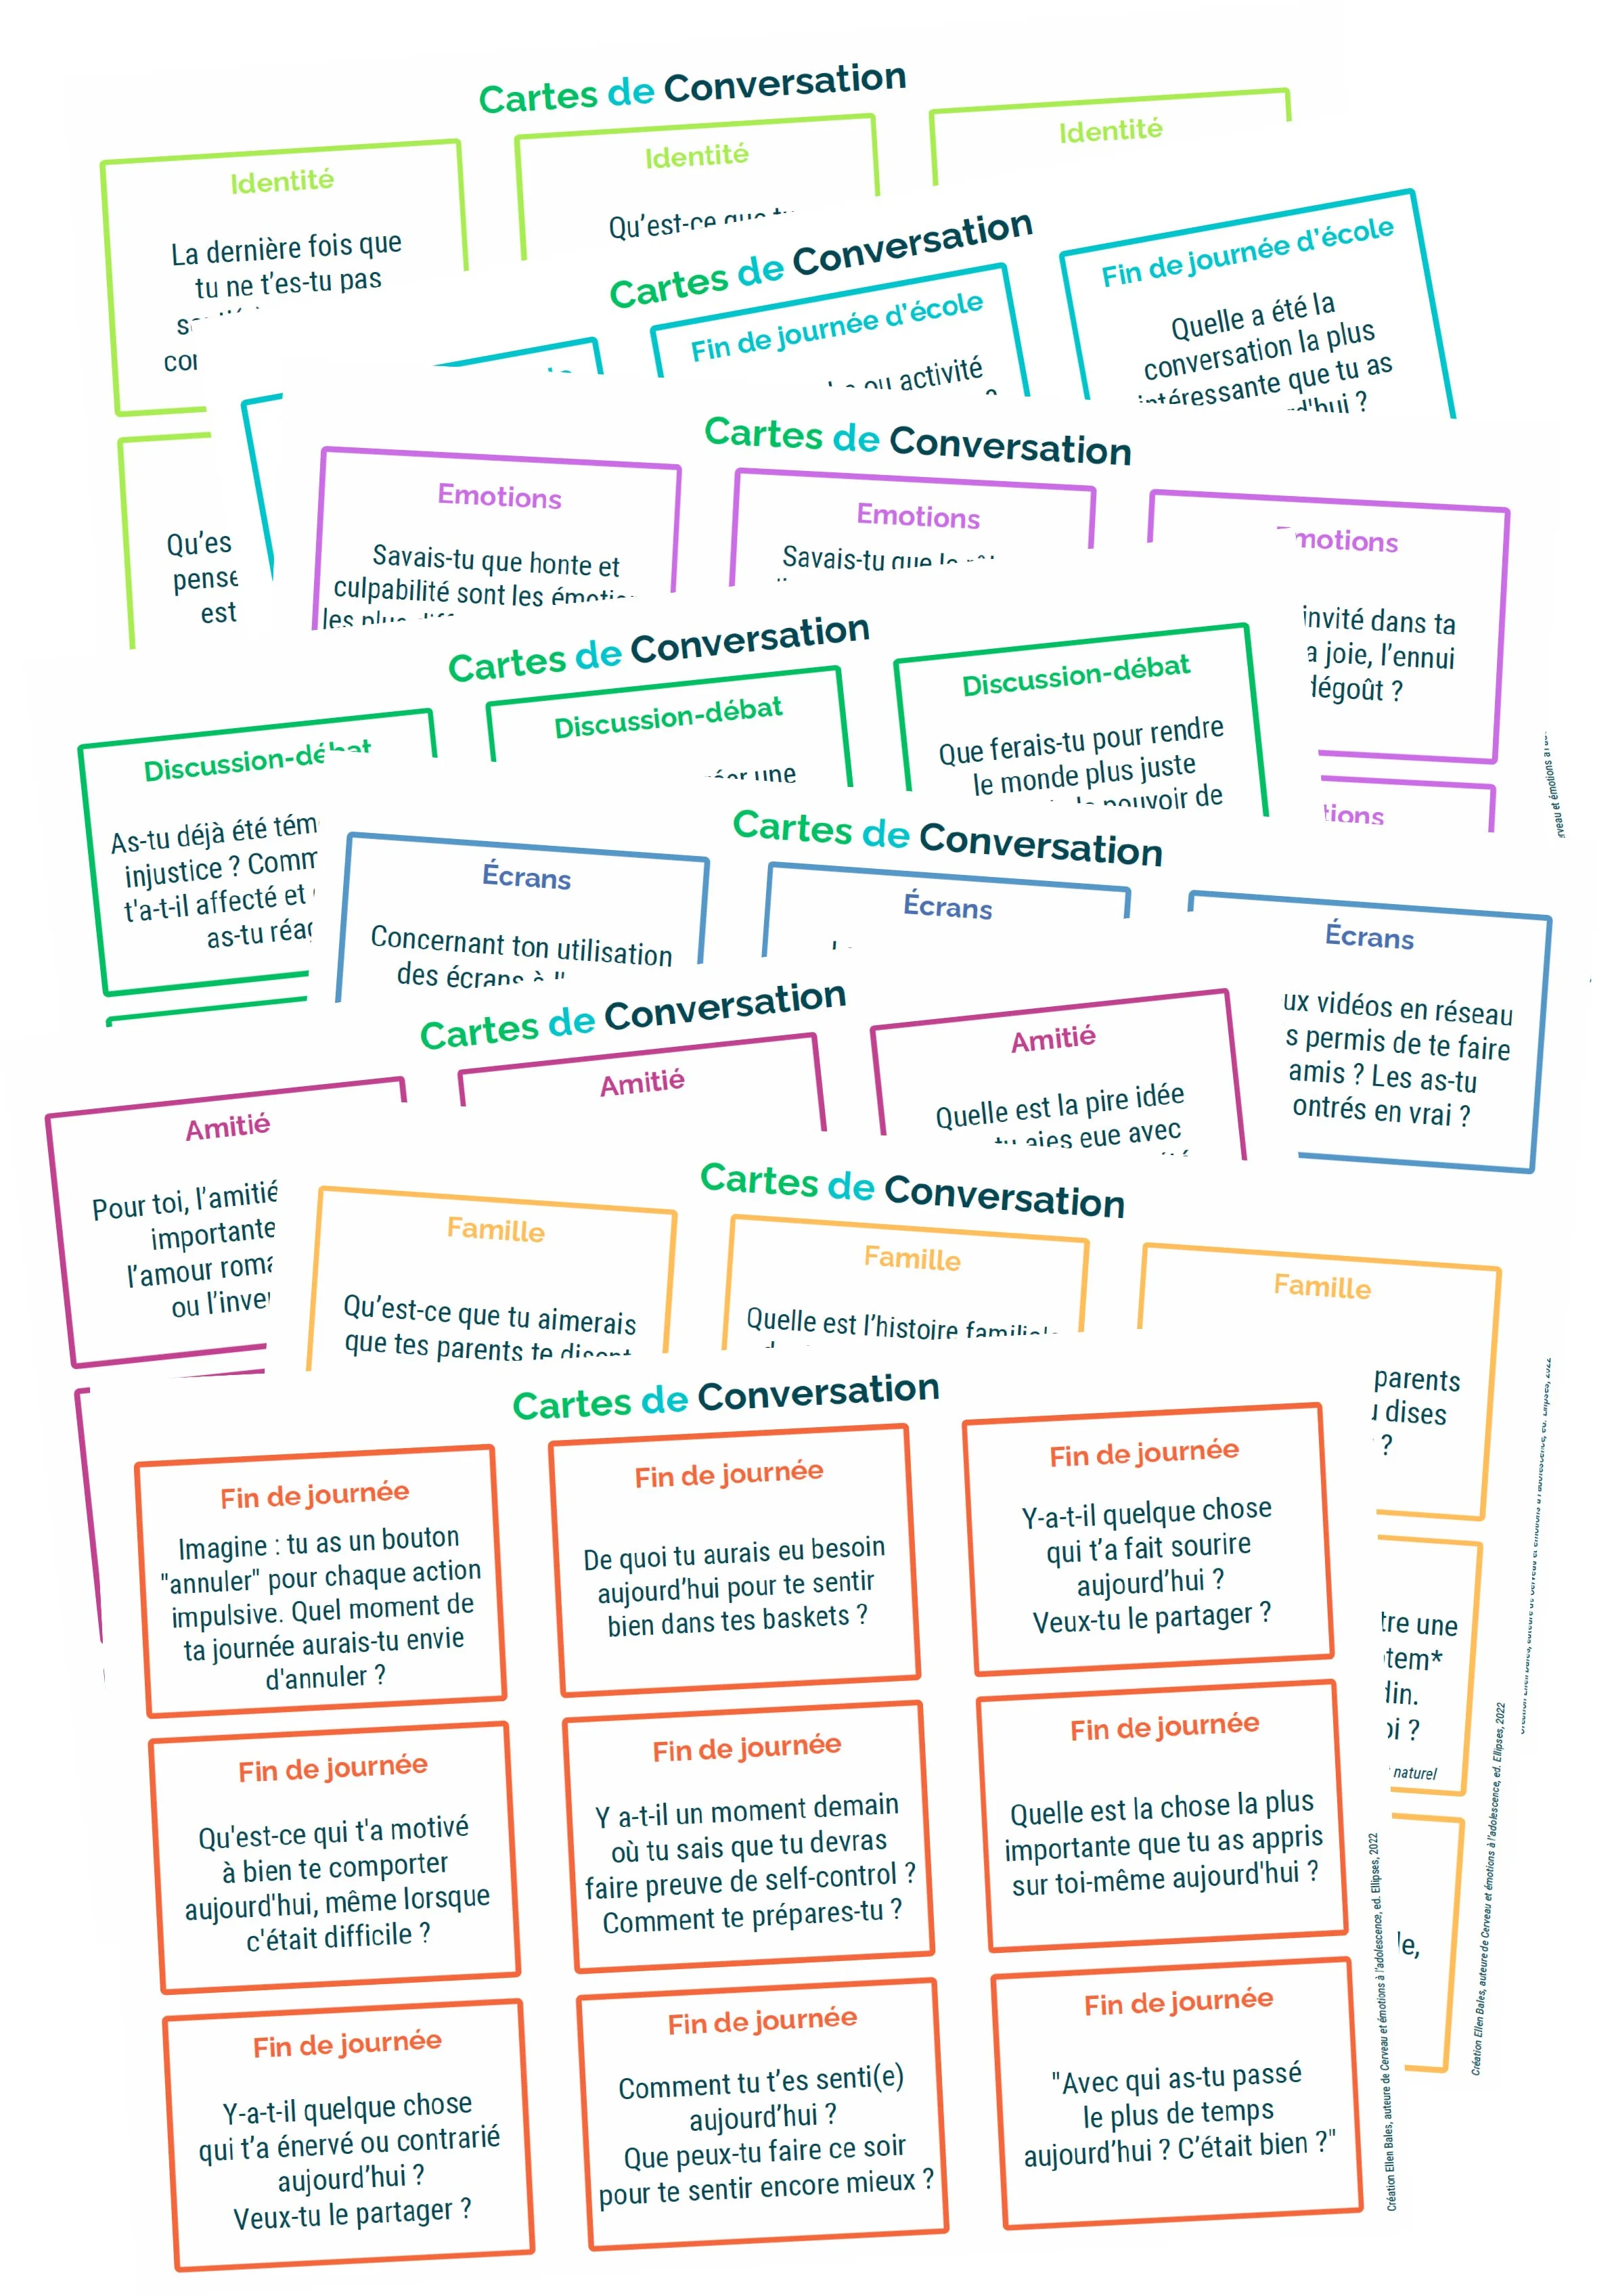 Cartes de Conversation
Identité
La dernière fois que
tu ne t'es-tu pas
Identité
Qu'est-ce que tu
Identité
Qu'es
pense
est
Cartes de Conversation
Fin de journée d'école
ou activité
Fin de journée d'école
Quelle a été la
conversation la plus
intéressante que tu as
Cartes de Conversation
Emotions
Savais-tu que honte et
culpabilité sont les
les plus
Emotions
Savais-tu que
motions
invité dans ta
a joie, l'ennui
dégoût ?
tions
Cartes de Conversation
Discussion-débat
As-tu déjà été tém
injustice ? Comm
t'a-t-il affecté et
as-tu réag
Discussion-débat
une
Discussion-débat
Que ferais-tu pour rendre
le monde plus juste
pouvoir de
Cartes de Conversation
Écrans
Concernant ton utilisation
des écrans à
Écrans
Écrans
ux vidéos en réseau
s permis de te faire
amis ? Les as-tu
ontrés en vrai ?
Cartes de Conversation
Amitié
Pour toi, l'amitié
importante
l'amour roma
ou l'inve
Amitié
Amitié
Quelle est la pire idée
tu aies eue avec
Cartes de Conversation
Famille
Qu'est-ce que tu aimerais
que tes parents te disent
Famille
Quelle est l'histoire
Famille
parents
u dises
?
tre une
tem*
din.
oi ?
naturel
le,
Cartes de Conversation
Fin de journée
Imagine : tu as un bouton
"annuler" pour chaque action
impulsive. Quel moment de
ta journée aurais-tu envie
d'annuler ?
Fin de journée
De quoi tu aurais eu besoin
aujourd'hui pour te sentir
bien dans tes baskets ?
Fin de journée
Y-a-t-il quelque chose
qui t'a fait sourire
aujourd'hui ?
Veux-tu le partager ?
Fin de journée
Qu'est-ce qui t'a motivé
à bien te comporter
aujourd'hui, même lorsque
c'était difficile ?
Fin de journée
Y a-t-il un moment demain
où tu sais que tu devras
faire preuve de self-control ?
Comment te prépares-tu ?
Fin de journée
Quelle est la chose la plus
importante que tu as appris
sur toi-même aujourd'hui ?
Fin de journée
Y-a-t-il quelque chose
qui t'a énervé ou contrarié
aujourd'hui ?
Veux-tu le partager ?
Fin de journée
Comment tu t'es senti(e)
aujourd'hui ?
Que peux-tu faire ce soir
pour te sentir encore mieux ?
Fin de journée
"Avec qui as-tu passé
le plus de temps
aujourd'hui ? C'était bien ?"
Création Ellen Bales, auteure de Cerveau et émotions à l'adolescence, ed. Ellipses, 2022
Création Ellen Bales, auteure de Cerveau et émotions à l'adolescence, ed. Ellipses, 2022